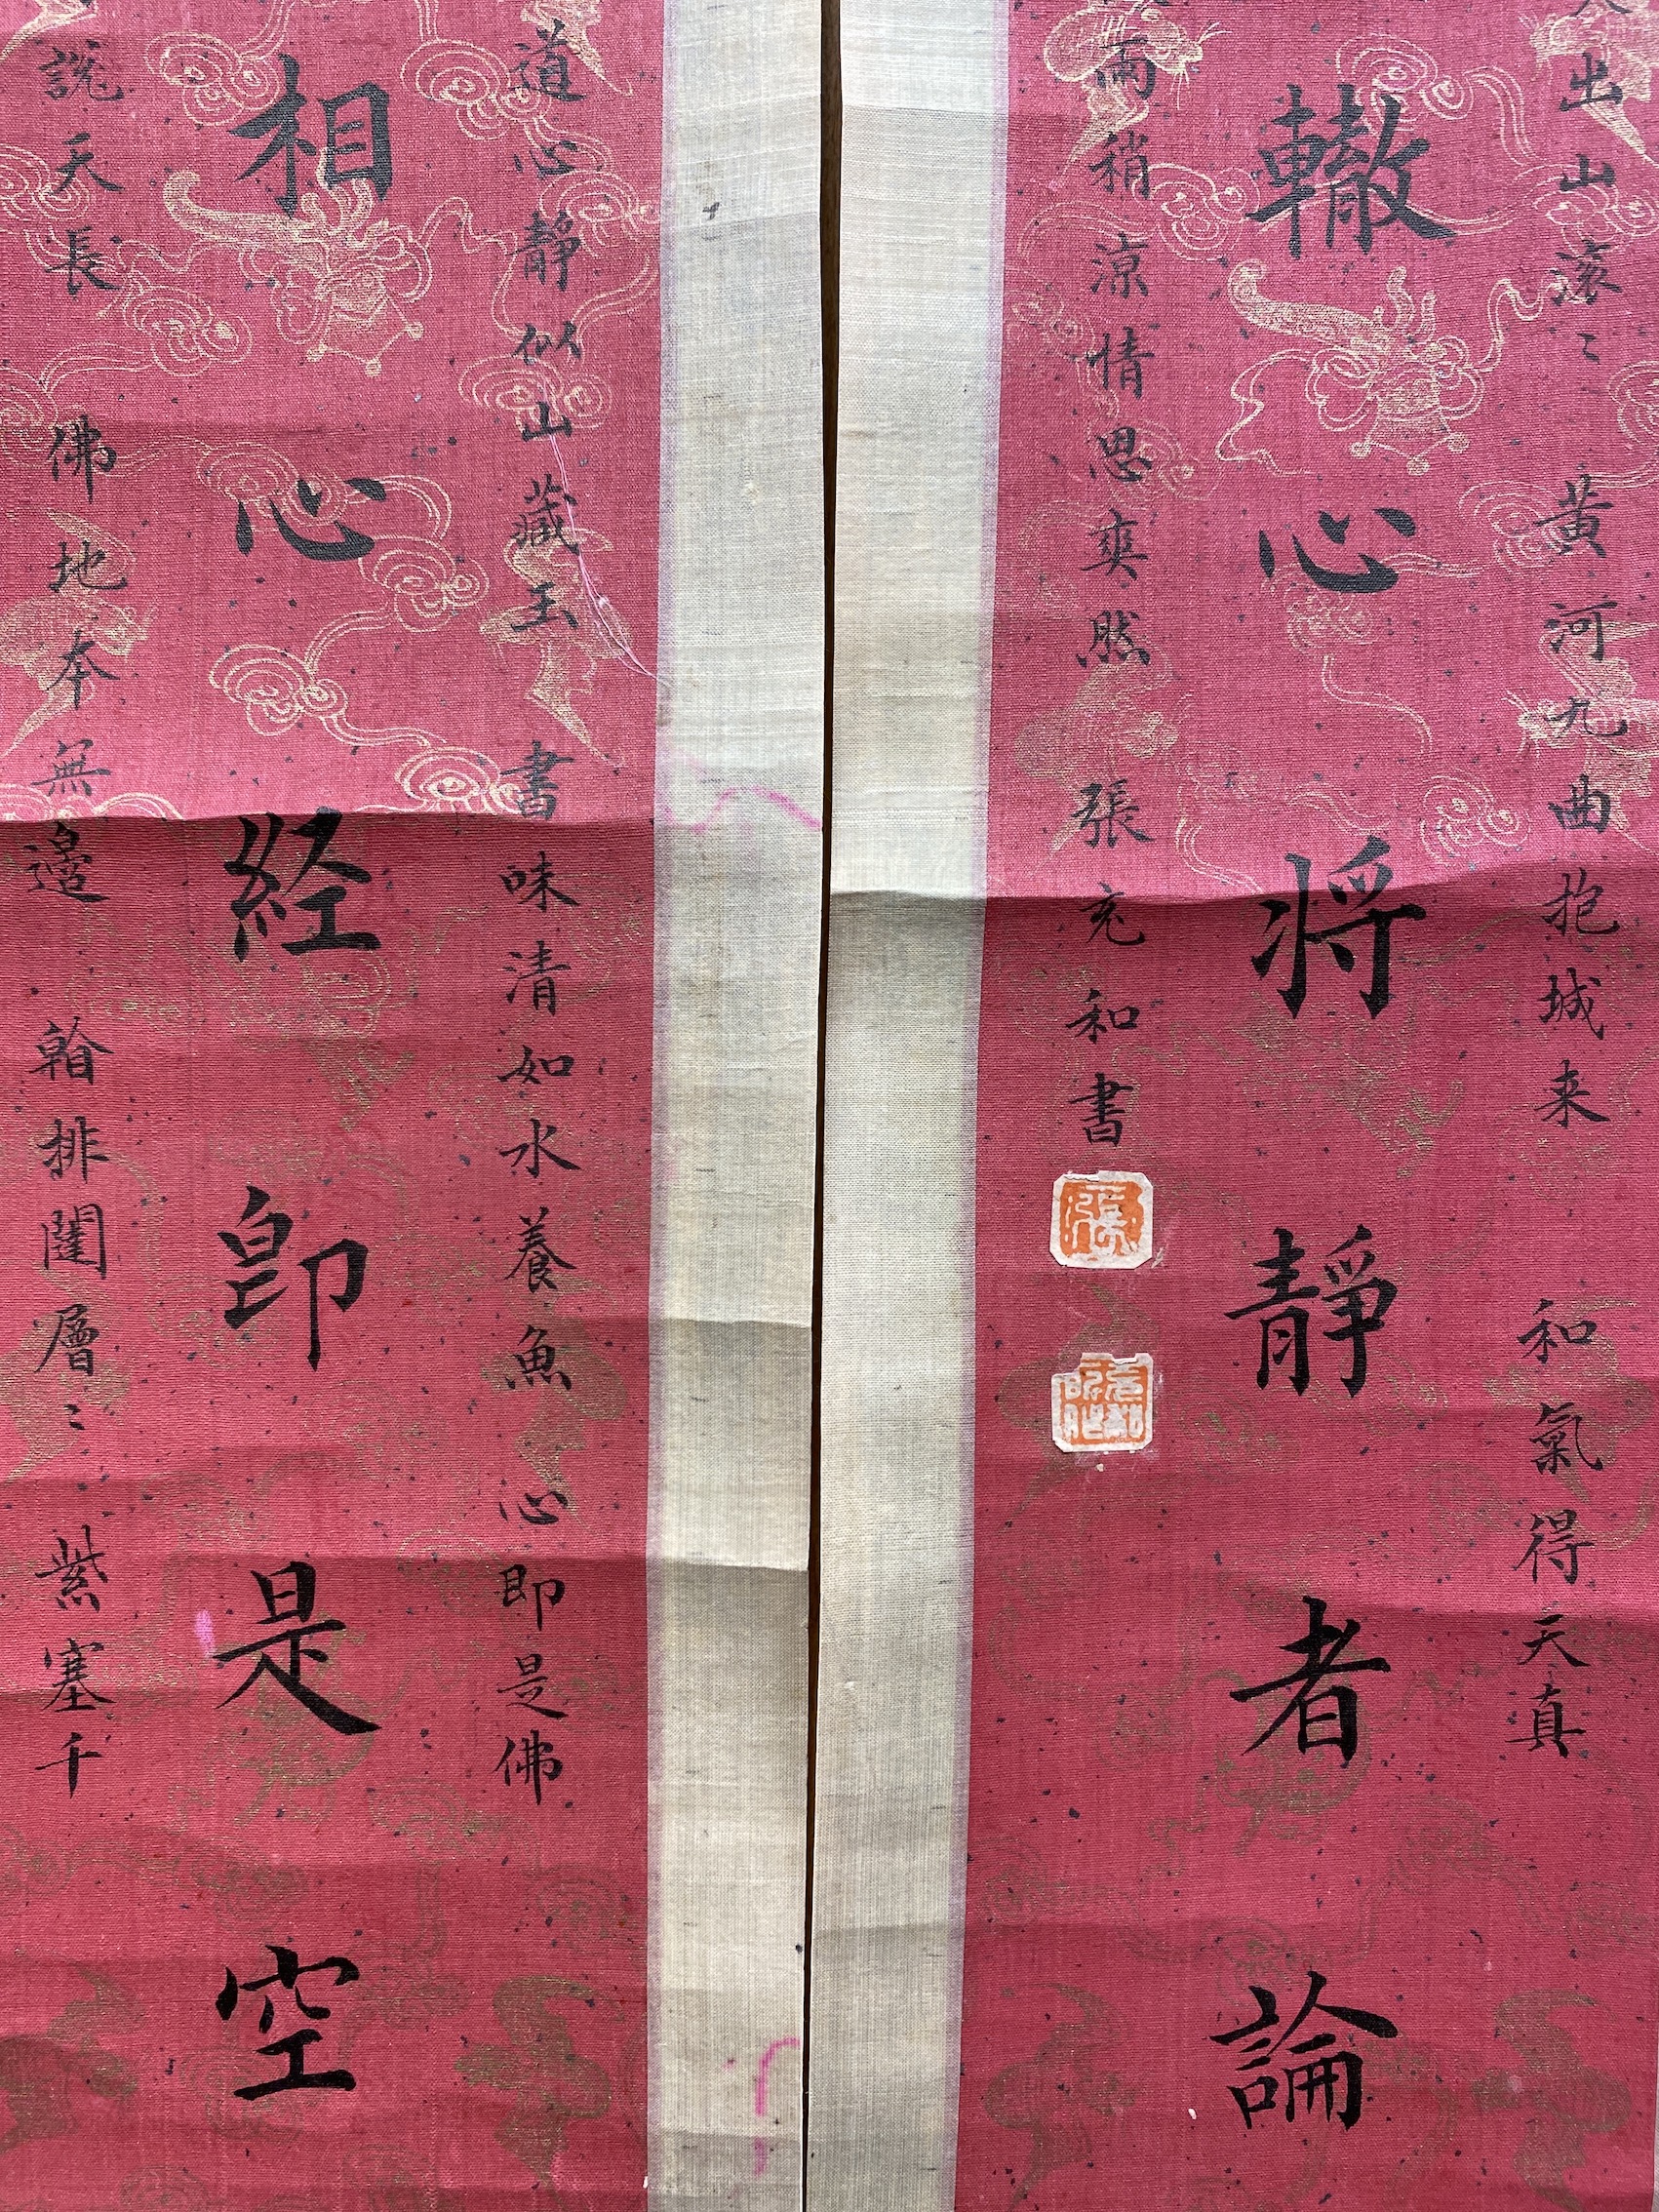 出山滚〻 黄河九曲抱城来 和氣得天真
轍心将靜者論
雨稍凉情思爽然 張充和書
張
道心靜似山藏玉 書味清如水養魚 心即是佛
相心経即是空
說天長 佛地本無邊 看排闥層〻 紫塞千